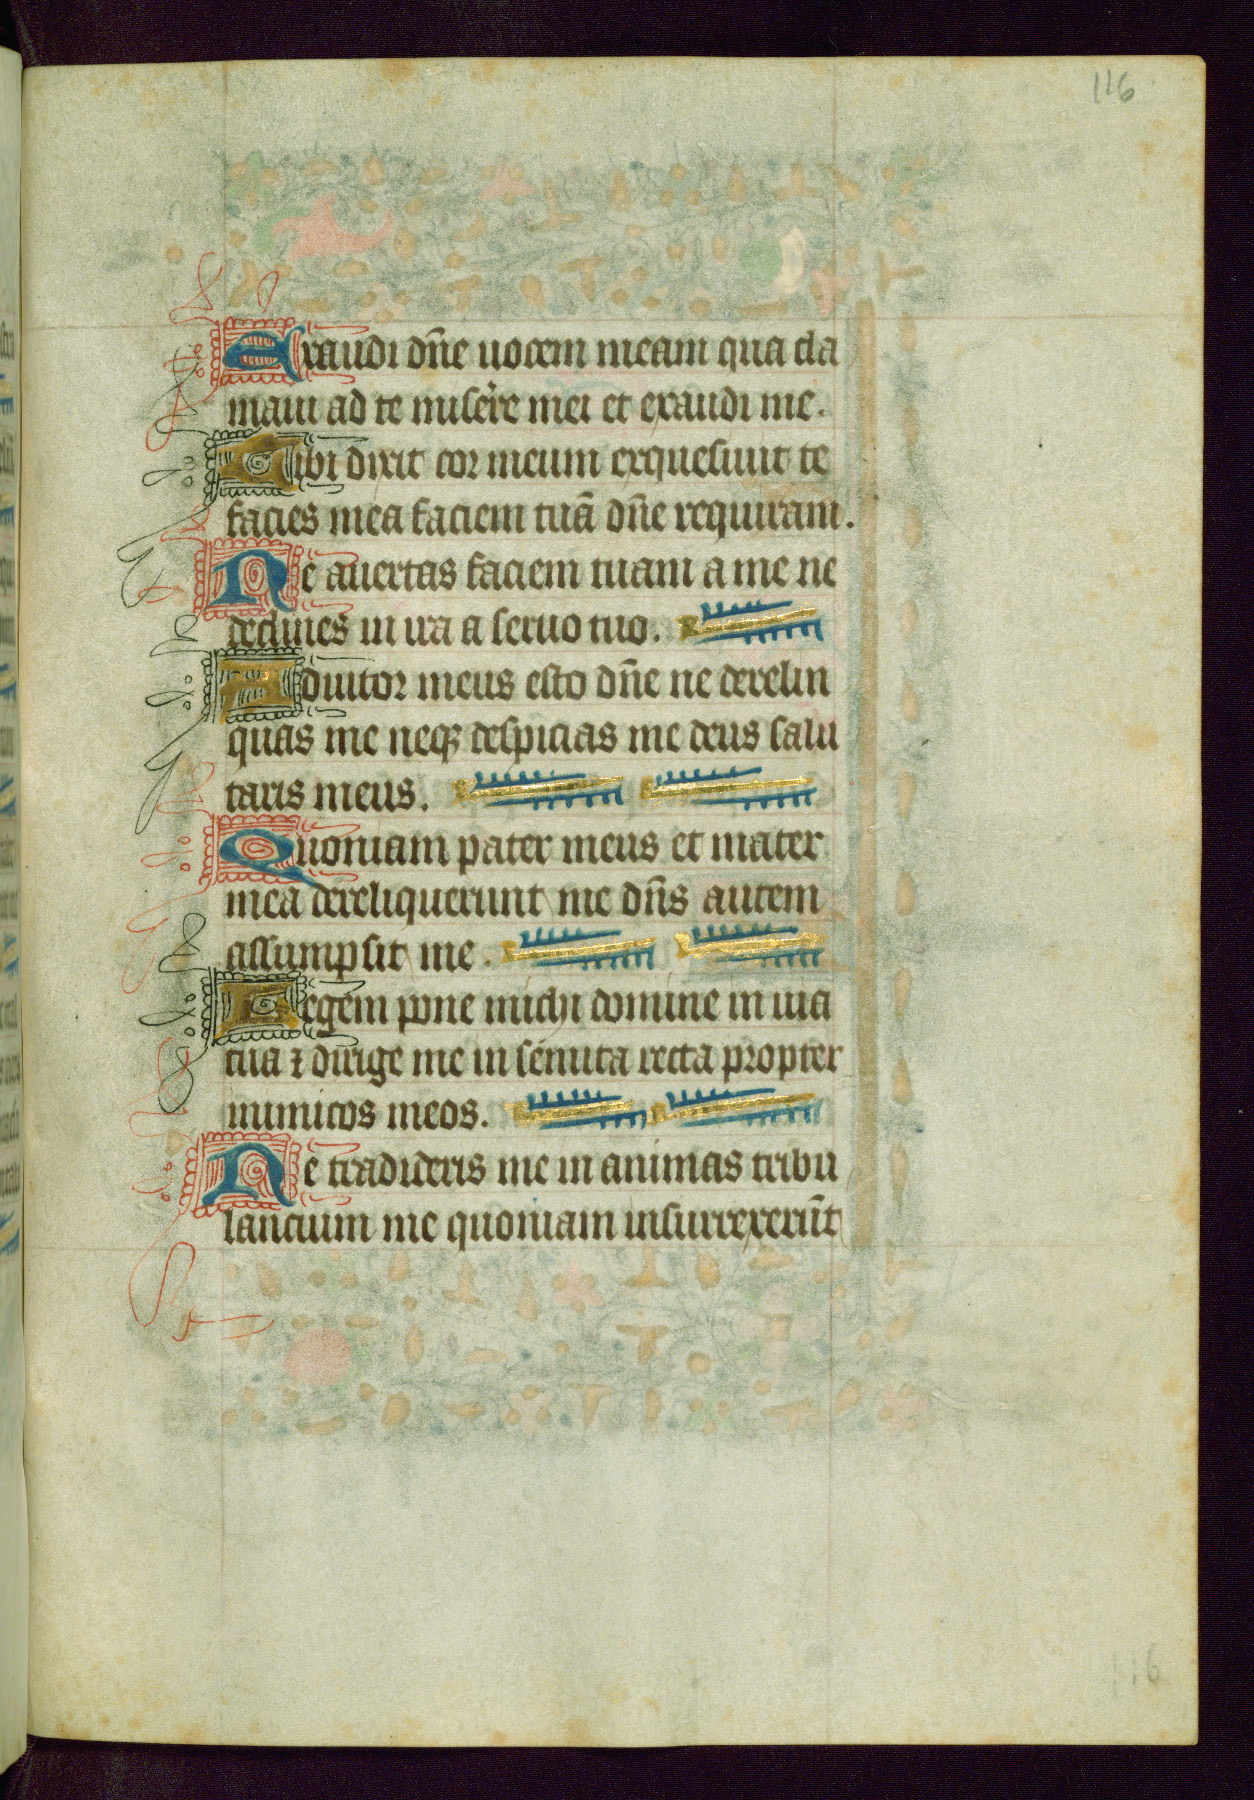 116
Exaudi dn̄e uocem meam qua cla
maui ad te misere mei et exaudi me.
Tibi dixit cor meum exquesiuit te
facies mea faciem tuā dn̄e requiram.
Ne auertas faciem tuam a me ne
declines in ira a seruo tuo.
Adiutor meus esto dn̄e ne derelin
quas me neqꝫ despicias me deus salu
taris meus.
Quoniam pater meus et mater
mea dereliquerunt me dn̄s autem
assumpsit me.
Legem pone michi domine in uia
tua ⁊ dirige me in semita recta propter
inimicos meos.
Ne tradideris me in animas tribu
lancium me quoniam insurrexerūt
116